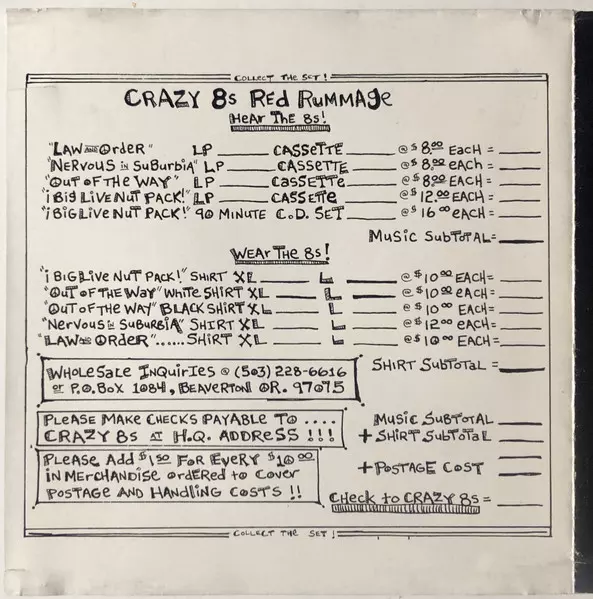 COLLECT THE SET!
CRAZY 8s RED RUMMAGE
HEAR THE 8s!
"LAW AND ORDER" LP ____ CASSETTE ____ @ $8.00 EACH = ____
"NERVOUS IN SUBURBIA" LP ____ CASSETTE ____ @ $8.00 EACH = ____
"OUT OF THE WAY" LP ____ CASSETTE ____ @ $8.00 EACH = ____
"¡BIG LIVE NUT PACK!" LP ____ CASSETTE ____ @ $12.00 EACH = ____
"¡BIG LIVE NUT PACK!" 90 MINUTE C.D. SET ____ @ $16.00 EACH = ____
MUSIC SUBTOTAL = ____
WEAR THE 8s!
"¡BIG LIVE NUT PACK!" SHIRT XL ____ L ____ @ $10.00 EACH = ____
"OUT OF THE WAY" WHITE SHIRT XL ____ L ____ @ $10.00 EACH = ____
"OUT OF THE WAY" BLACK SHIRT XL ____ L ____ @ $10.00 EACH = ____
"NERVOUS IN SUBURBIA" SHIRT XL ____ L ____ @ $12.00 EACH = ____
"LAW AND ORDER"...... SHIRT XL ____ L ____ @ $10.00 EACH = ____
WHOLESALE INQUIRIES @ (503) 228-6616
OR P.O. BOX 1084, BEAVERTON OR. 97075
SHIRT SUBTOTAL = ____
PLEASE MAKE CHECKS PAYABLE TO ....
CRAZY 8s AT H.Q. ADDRESS !!!
PLEASE ADD $1.50 FOR EVERY $10.00
IN MERCHANDISE ORDERED TO COVER
POSTAGE AND HANDLING COSTS !!
MUSIC SUBTOTAL ____
+ SHIRT SUBTOTAL ____
+ POSTAGE COST ____
CHECK TO CRAZY 8s = ____
COLLECT THE SET!